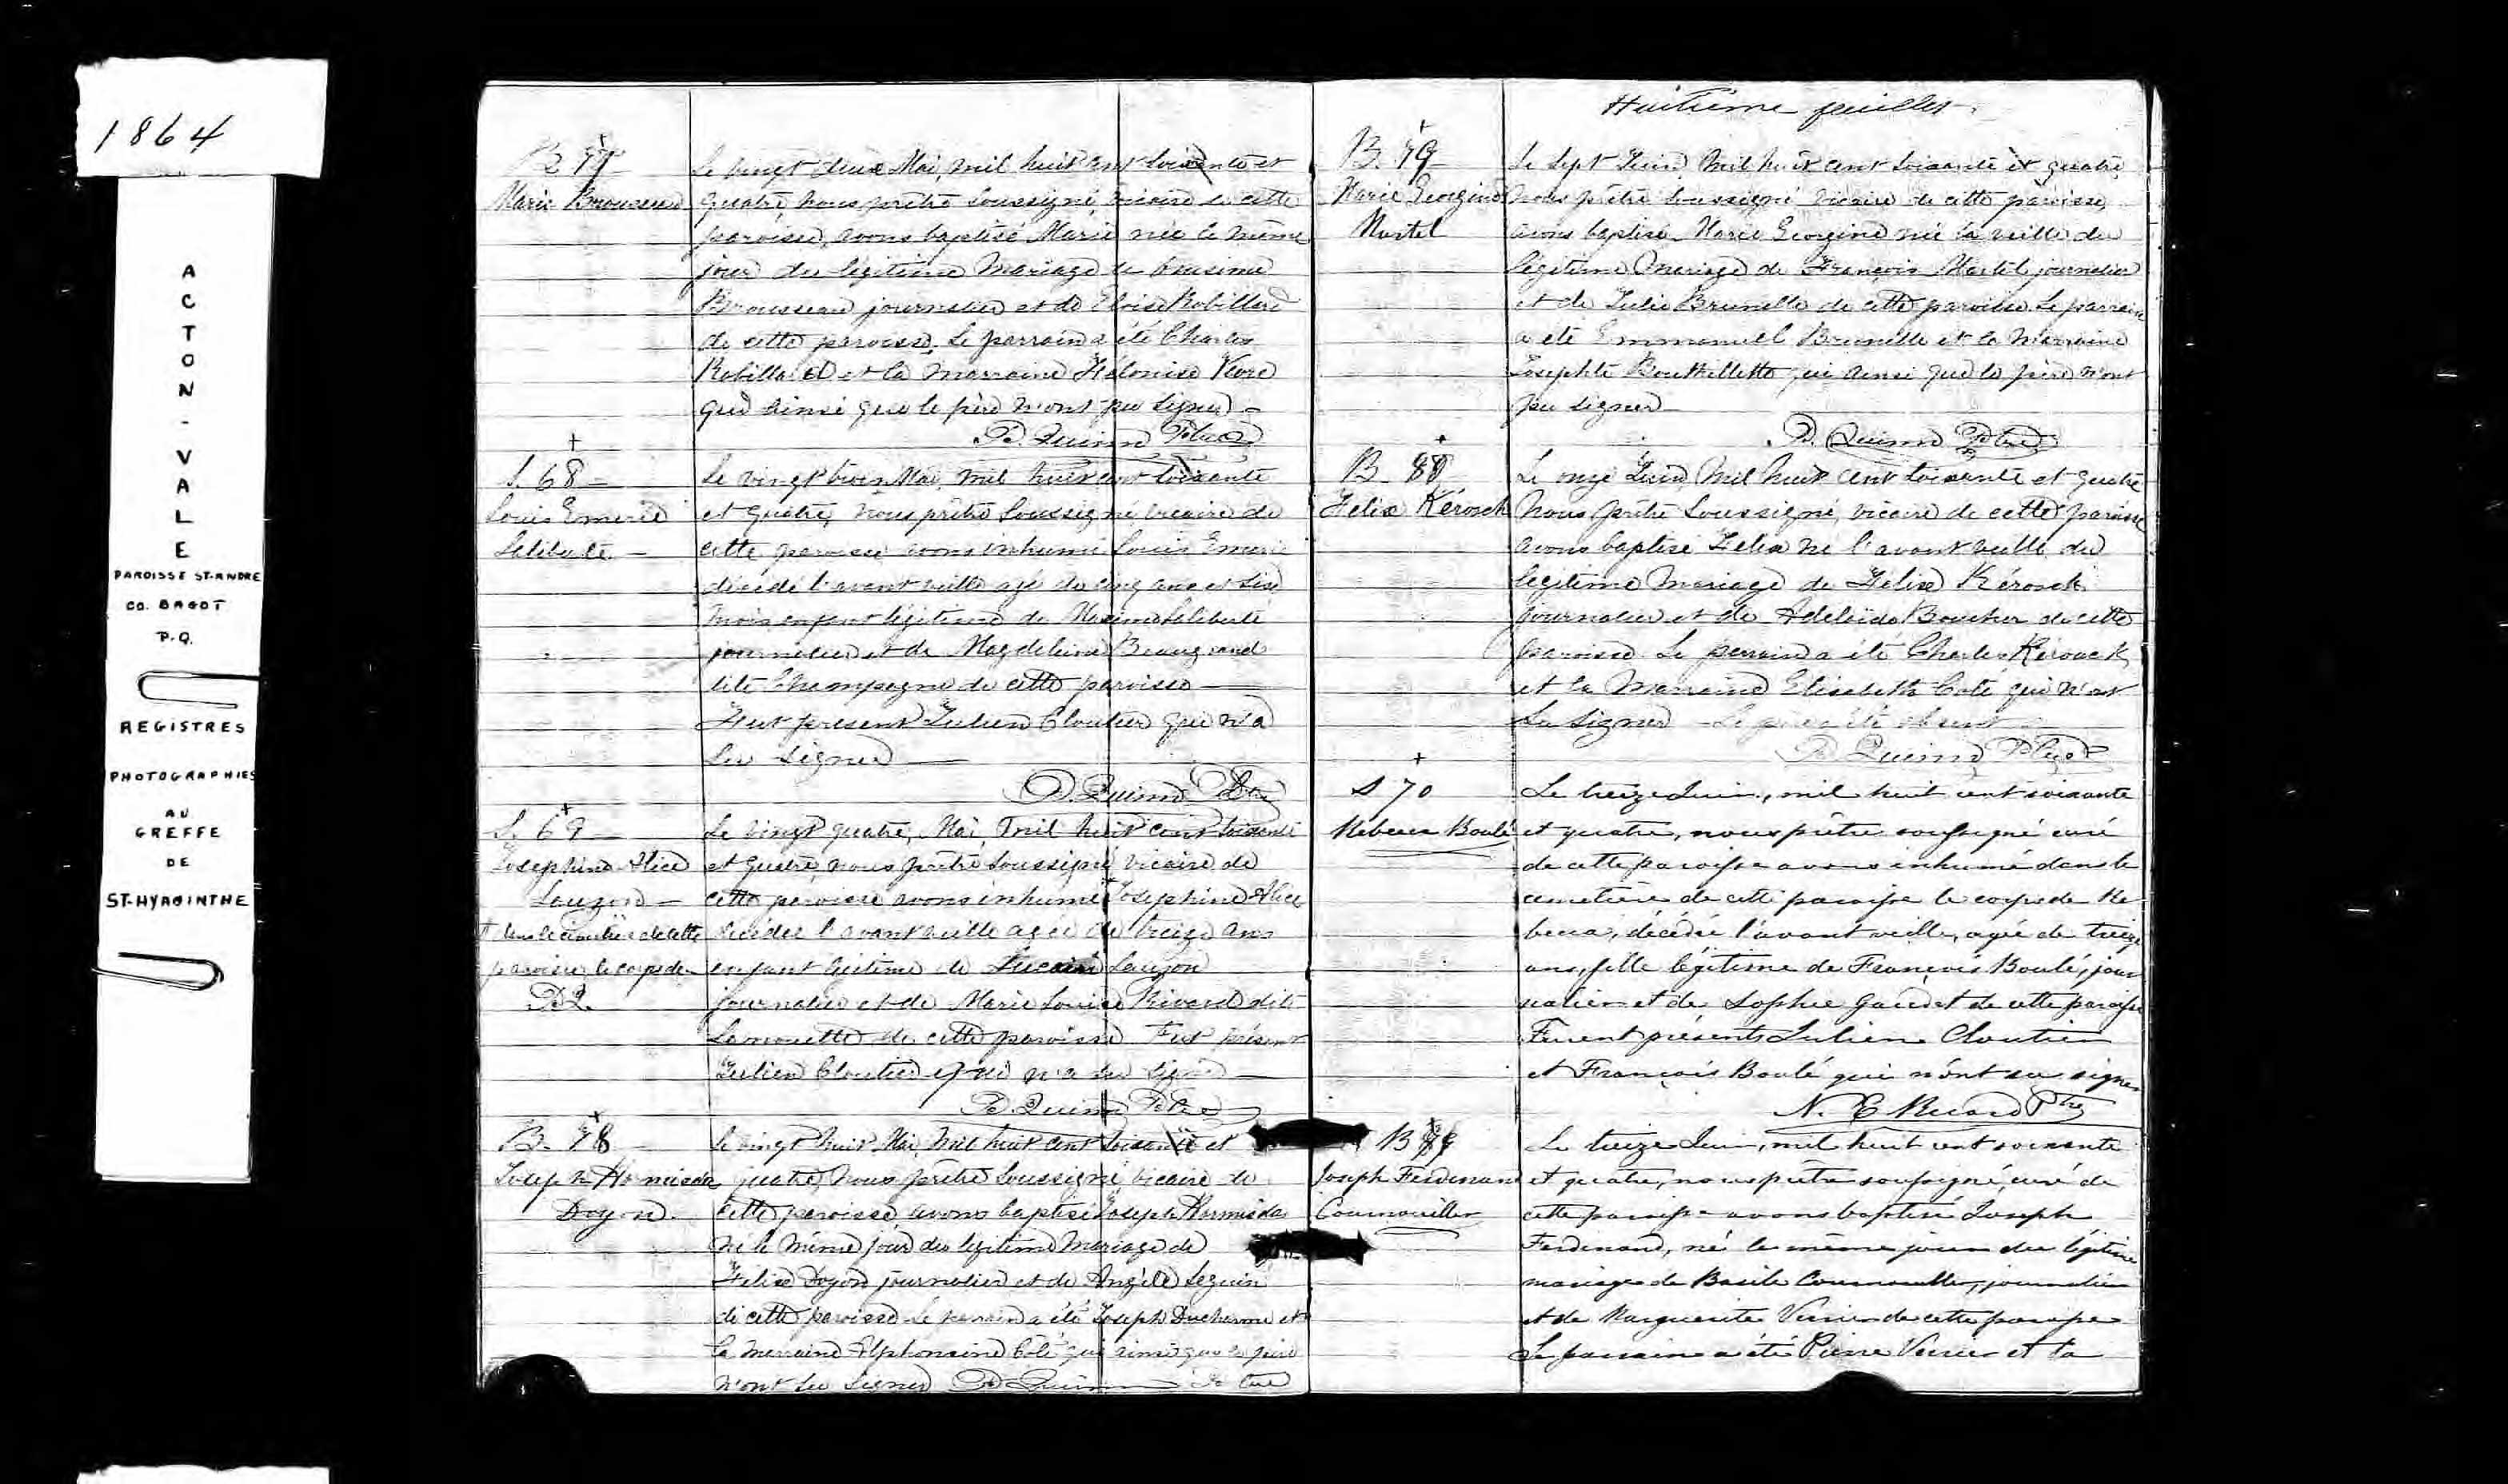 1864
ACTON-VALE
PAROISSE ST-ANDRE
CO. BAGOT
P.Q.
REGISTRES
PHOTOGRAPHIES
AU
GREFFE
DE
ST-HYACINTHE
B 77
Marie Brousseau
Le vingt deux Mai, mil huit cent soixante et
quatre, nous prêtre soussigné, vicaire de cette
paroisse, avons baptisé Marie née le même
jour du légitime Mariage de
Brousseau journalier et de Eloise Robillard
de cette paroisse. Le parrain a été Charles
Robillard et la Marraine Hélonise
qui ainsi que le père n'ont pu signer
P. Quinn Ptre
S. 68
Louis Emerie
Laliberté
Le vingt trois Mai, mil huit cent soixante
et quatre, nous prêtre soussigné, vicaire de
cette paroisse avons inhumé Louis Emerie
décédé l'avant veille agé de cinq ans et six
mois enfant légitime de Maxime Laliberté
journalier et de Magdeleine Beaugrand
dite Champagne de cette paroisse
Fut présent Julien Cloutier qui n'a
su signer
P. Quinn Ptre
S. 69
Josephine Alice
Lauzon
+ dans le cimetière de cette
paroisse, le corps de
P.Q.
Le vingt quatre, Mai, mil huit cent soixante
et quatre, nous prêtre soussigné vicaire de
cette paroisse avons inhumé + Josephine Alice
décédée l'avant veille agée de treize ans
enfant légitime de Lauzon
journalier et de Marie Louise Rivard dite
Lanouette de cette paroisse Fut présent
Julien Cloutier qui n'a su signer
P. Quinn Ptre
B. 78
Joseph Hormisdas
Doyon
Le vingt huit Mai, Mil huit cent soixante et
quatre, nous prêtre soussigné, vicaire de
cette paroisse, avons baptisé Joseph Hormisdas
né le même jour du légitime Mariage de
Felix Doyon journalier et de Angèle Seguin
de cette paroisse Le parrain a été Joseph Ducharme et
la Marraine Alphonsine Coté qui ainsi que le père
n'ont su signer P. Quinn Ptre
Huitième feuillet.
B. 79
Marie Georgine
Martel
Le sept Juin, Mil huit cent soixante et quatre
nous prêtre soussigné vicaire de cette paroisse,
avons baptisé Marie Georgine née la veille du
légitime Mariage de François Martel journalier
et de Julie Brunelle de cette paroisse. Le parrain
a été Emmanuel Brunelle et la Marraine
Josephte Bouthillette qui ainsi que le père n'ont
pu signer
P. Quinn Ptre
B. 80
Felix Kérouck
Le onze Juin, Mil huit cent soixante et quatre
Nous, prêtre soussigné, vicaire de cette paroisse
avons baptisé Felix né l'avant veille du
légitime Mariage de Félix Kérouck
journalier et de Adelaide Boucher de cette
paroisse. Le parrain a été Charles Kérouack
et la Marraine Elisabeth Coté qui n'ont
su signer Le père a été absent
P Quinn Ptre
S 70
Rebecca Boulé
Le treize Juin, mil huit cent soixante
et quatre, nous prêtre soussigné curé
de cette paroisse avons inhumé dans le
cimetière de cette paroisse le corps de Re
becca, décédée l'avant veille, agée de treize
ans, fille légitime de François Boulé, jour
nalier et de Sophie Gaudet de cette paroisse
Furent présents Julien Cloutier
et François Boulé qui n'ont su signer
N. E. Ricard Ptre
B
Joseph Ferdinand
Cournoiller
Le treize Juin, mil huit cent soixante
et quatre, nous prêtre soussigné, curé de
cette paroisse avons baptisé Joseph
Ferdinand, né le même jour du légitime
mariage de Basile Cournoiller, journalier
et de Marguerite Verrier de cette paroisse
Le parrain a été Pierre Verrier et la